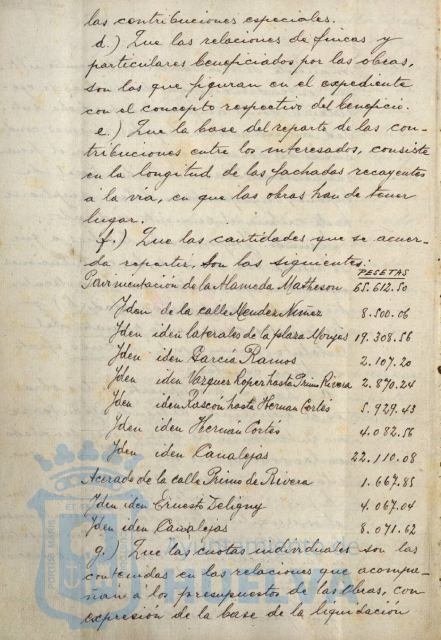 las contribuciones especiales.
d.) Que las relaciones de fincas y
particulares beneficiados por las obras,
son las que figuran en el expediente
con el concepto respectivo del beneficio.
e.) Que la base del reparto de las con-
tribuciones entre los interesados, consiste
en la longitud de las fachadas recayentes
a la via, en que las obras han de tener
lugar.
f.) Que las cantidades que se acuer-
da repartir, son las siguientes:
PESETAS
Pavimentación de la Alameda Matheson 65.612.50
Iden de la calle Mendez Núñez 8.500.06
Iden iden laterales de la plaza Monjas 19.308.56
Iden iden García Ramos 2.107.20
Iden iden Vazquez Lopez hasta Primo Rivera 2.870.24
Iden iden Rascón hasta Hernan Cortés 5.929.43
Iden iden Hernán Cortés 4.082.56
Iden iden Canalejas 22.110.08
Acerado de la calle Primo de Rivera 1.667.85
Iden iden Ernesto Deligny 4.067.04
Iden iden Canalejas 8.071.62
g.) Que las cuotas individuales son las
contenidas en las relaciones que acompa-
ñan a los presupuestos de las obras, con
expresión de la base de la liquidación
Ayuntamiento de
HUELVA
PORTUS MARIS